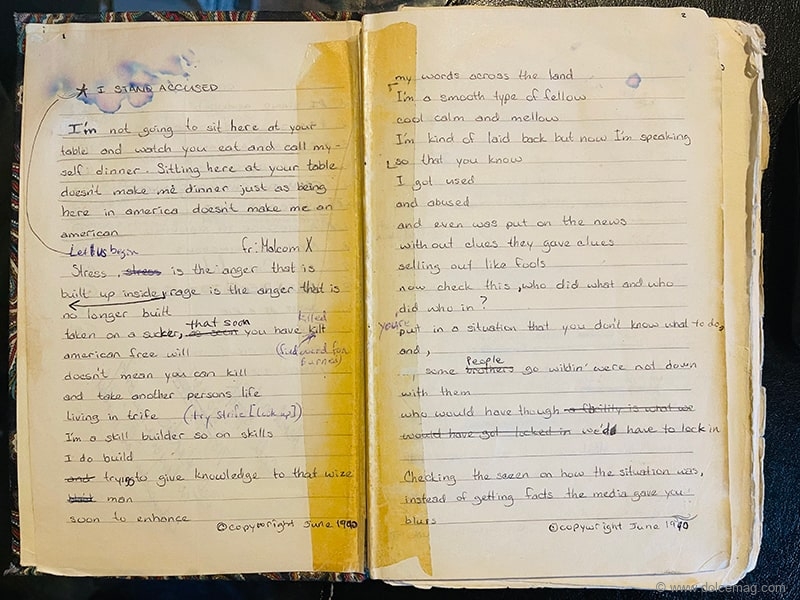 1
★ I STAND ACCUSED
I'm not going to sit here at your
table and watch you eat and call my-
self dinner. Sitting here at your table
doesn't make me dinner just as being
here in america doesn't make me an
american
Let us begin fr: Malcom X
Stress, stress is the anger that is
built up inside, rage is the anger that is
no longer built
taken on a sucker, as soon that soon you have kilt killed
american free will (find word for
doesn't mean you can kill
and take another persons life
living in trife (try strife [look up])
I'm a skill builder so on skills
I do build
and trying to give knowledge to that wize
man
soon to enhance
©copywright June 1990
2
my words across the land
I'm a smooth type of fellow
cool calm and mellow
I'm kind of laid back but now I'm speaking
so that you know
I got used
and abused
and even was put on the news
without clues they gave clues
selling out like fools
now check this, who did what and who
did who in?
your put in a situation that you don't know what to do,
and,
some brothers People go wildin' were not down
with them
who would have though a facility is what we
would have got locked in we'd have to lock in
Checking the sceen on how the situation was,
instead of getting facts the media gave you
blurs
©copywright June 1990
© www.dolcemag.com